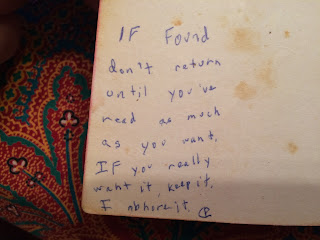 IF Found
don't return
until you've
read as much
as you want.
IF you really
want it, keep it.
I abhore it.